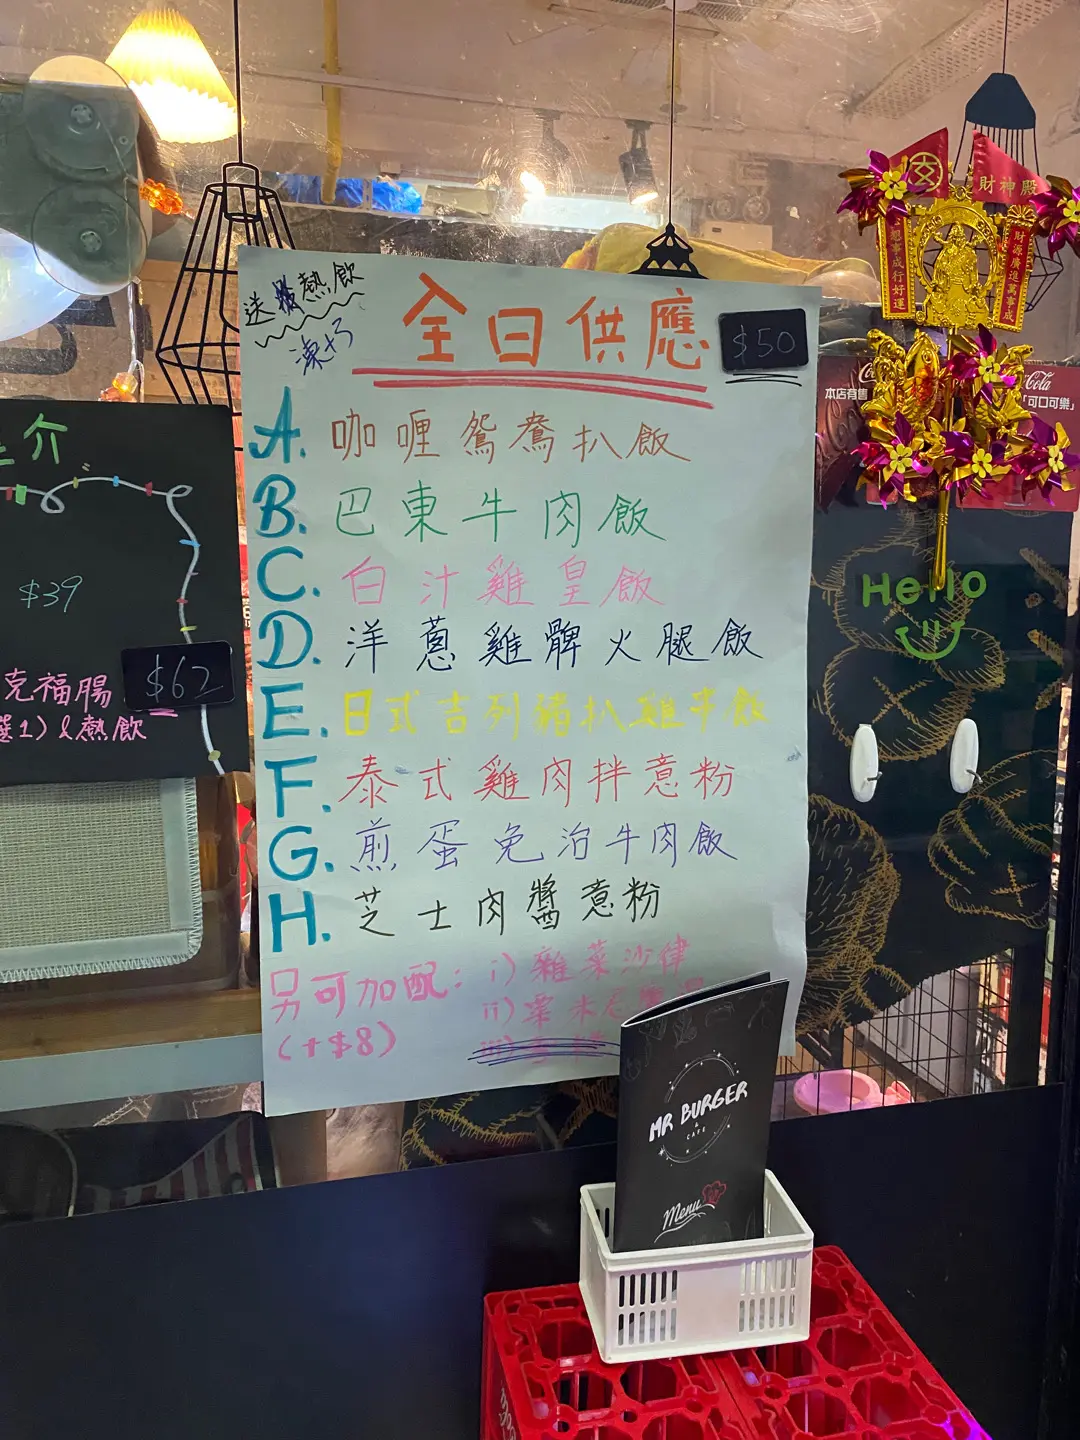 送熱飲
凍+3
全日供應
$50
A. 咖喱鴛鴦扒飯
B. 巴東牛肉飯
C. 白汁雞皇飯
D. 洋蔥雞髀火腿飯
E. 日式吉列豬扒雞牛飯
F. 泰式雞肉拌意粉
G. 煎蛋免治牛肉飯
H. 芝士肉醬意粉
另可加配:
(+$8)
i) 雜菜沙律
ii) 粟米
介
$39
克福腸
$62
選1) & 熱飲
財神殿
財源廣進萬事成
成行好運
本店有售
Cola
「可口可樂」
Hello
MR BURGER
&
CAFE
Menu